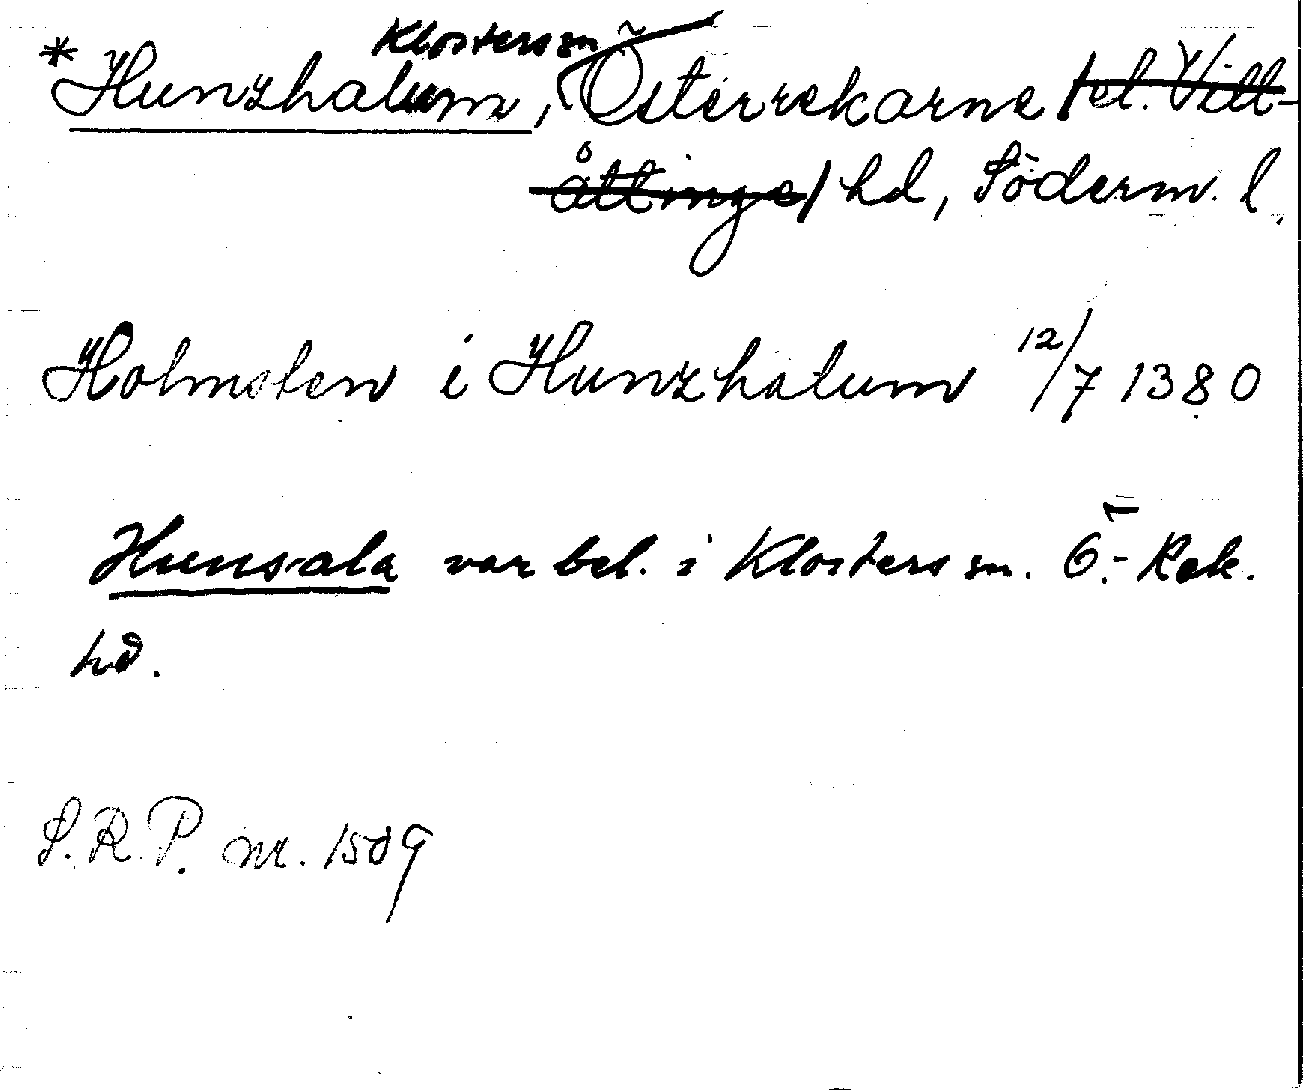 Klosters sn
*Hunzhalum, Österrekarne /el. Vill-
åttinge/ hd, Söderm. l.
Holmsten i Hunzhalum 12/7 1380
Hunsala var bel. i Klosters sn. Ö.-Rek.
hd.
S.R.P. nr. 1509